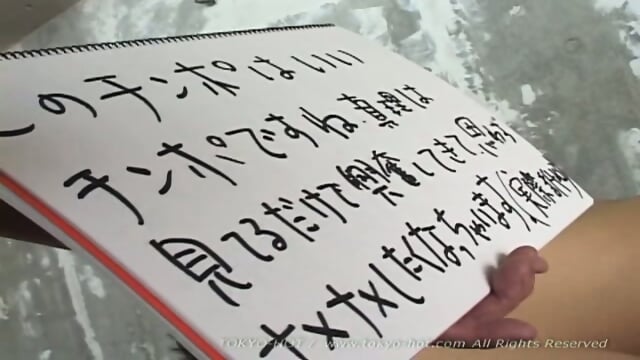 このチンポはいい
チンポですね。真理は
見てるだけで興奮してきて、思わず
ナメナメしたくなっちゃいます(実際
TOKYO-HOT / www.tokyo-hot.com All Rights Reserved